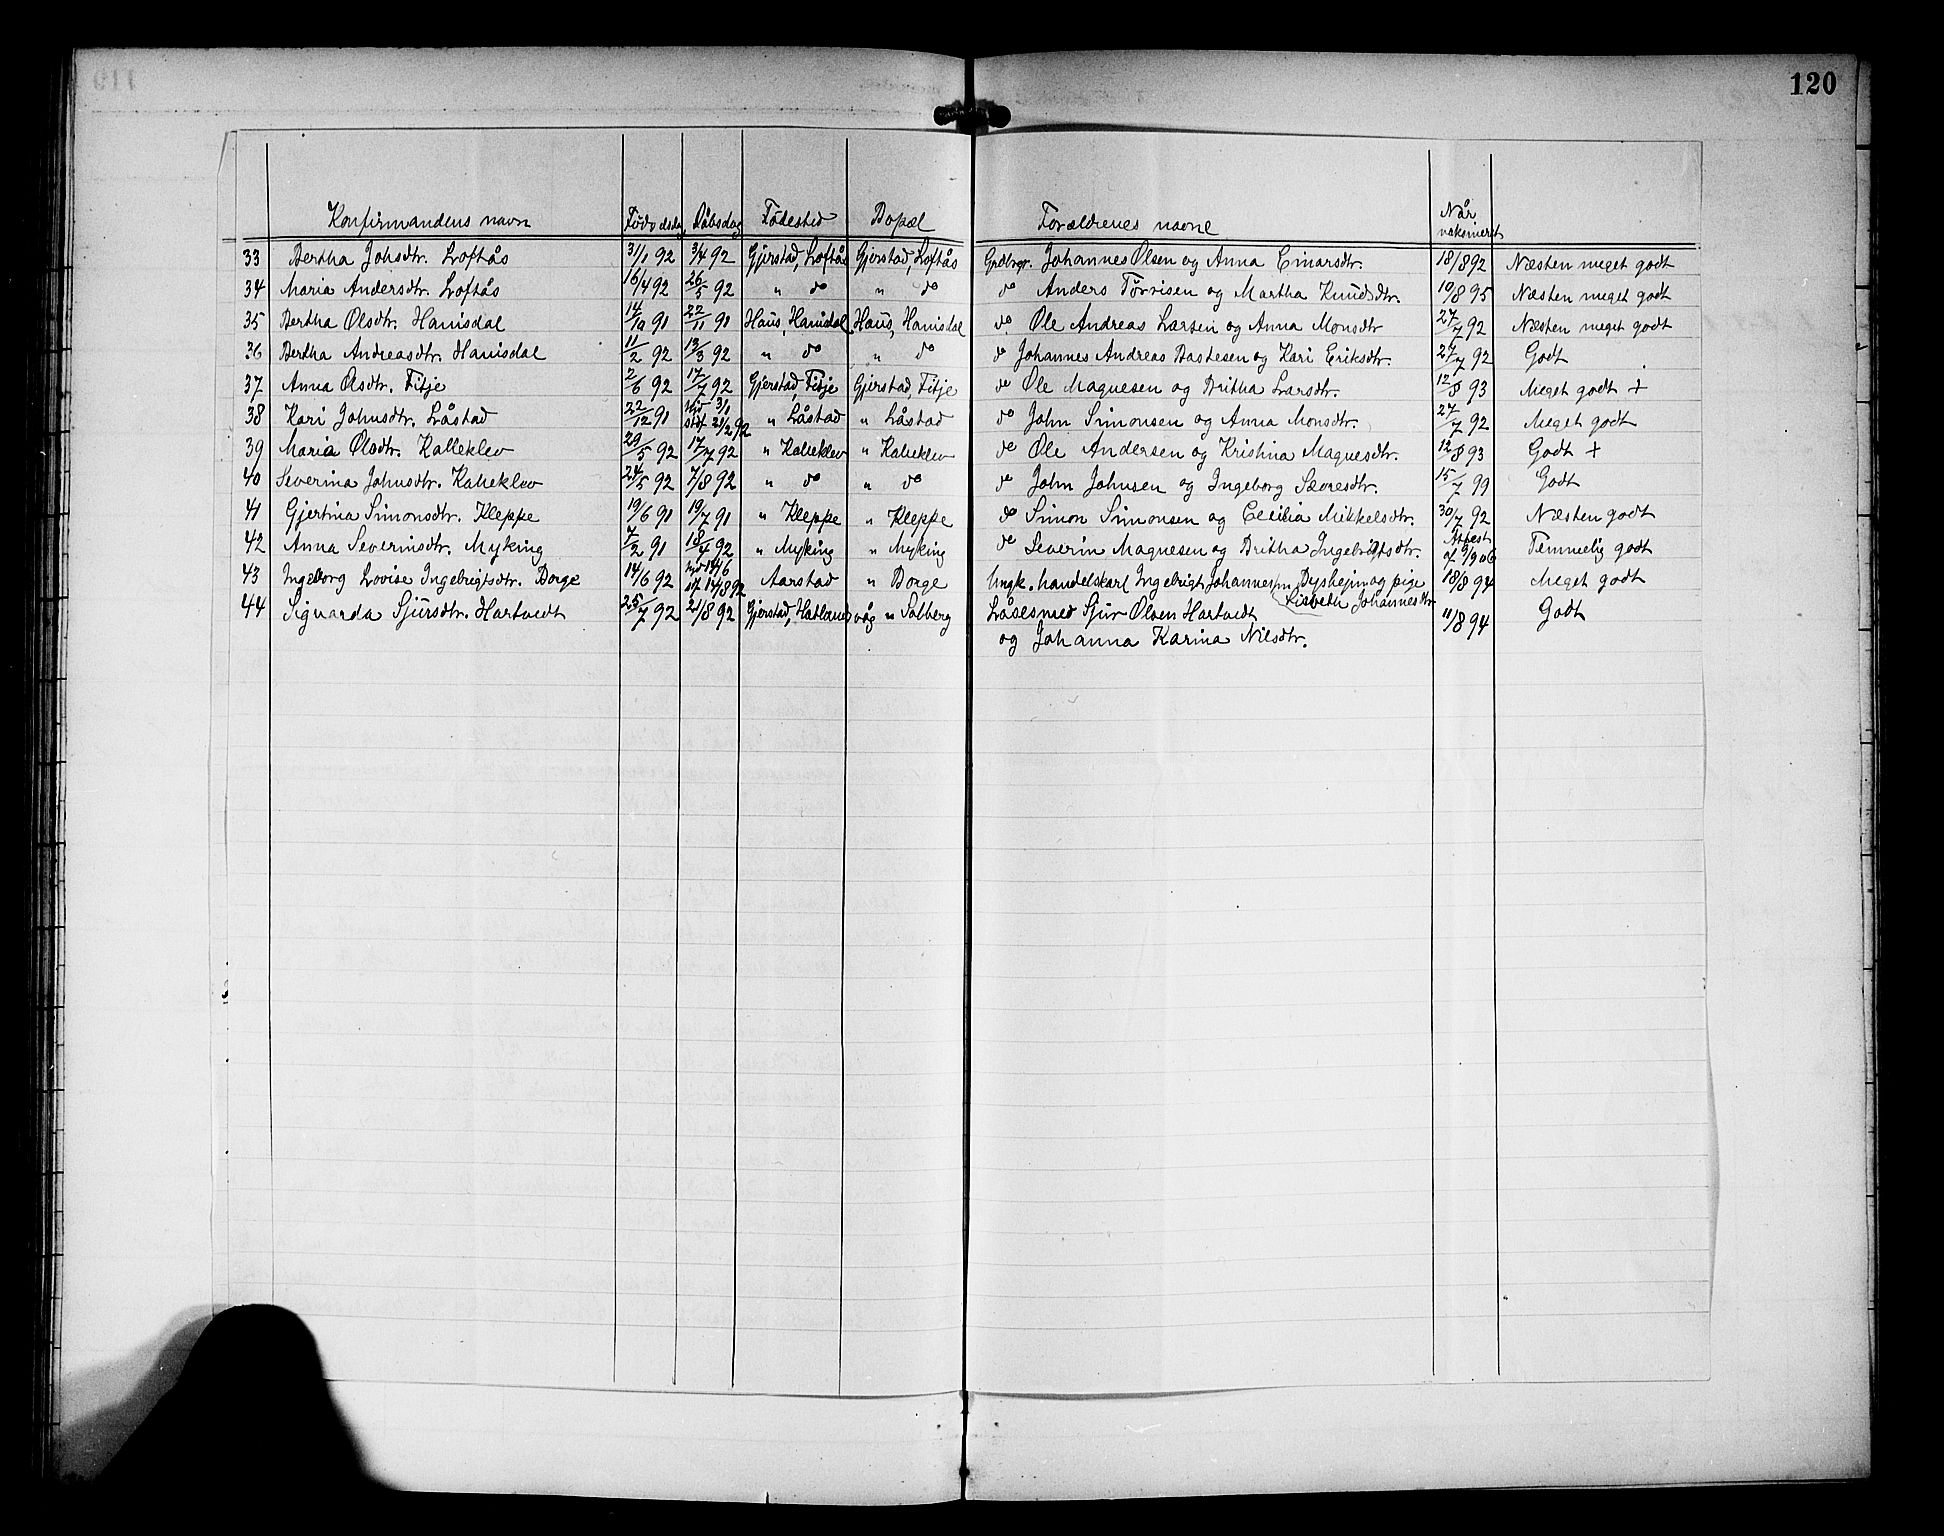 120
Konfirmandens navn Fødselsdag Dåbsdag Fødested Bopæl Forældrenes navne Når vaksineret
33 Bertha Johsdtr. Loftås 31/1 92 3/4 92 Gjerstad, Loftås Gjerstad, Loftås Grdbrgr. Johannes Olsen og Anna Einarsdtr. 18/8 92 Næsten meget godt
34 Maria Andersdtr. Loftås 16/4 92 26/5 92 " do " do do Anders Tørrisen og Martha Knudsdtr. 10/8 95 Næsten meget godt
35 Bertha Olsdtr. Hanisdal 14/10 91 22/11 91 Haus, Hanisdal Haus, Hanisdal do Ole Andreas Larsen og Anna Monsdtr 27/7 92 Næsten meget godt
36 Bertha Andreasdtr. Hanisdal 11/2 92 13/3 92 " do " do do Johannes Andreas Bastesen og Kari Eriksdtr. 27/7 92 Godt
37 Anna Olsdtr. Fitje 2/6 92 17/7 92 Gjerstad, Fitje Gjerstad, Fitje do Ole Magnesen og Britha Larsdtr. 12/8 93 Meget godt +
38 Kari Johnsdtr. Låstad 22/12 91 3/1 stf 21/2 92 " Låstad " Låstad do John Simonsen og Anna Monsdtr. 27/7 92 Meget godt
39 Maria Olsdtr. Kalleklev 29/5 92 17/7 92 " Kalleklev " Kalleklev do Ole Andersen og Kristina Magnesdtr. 12/8 93 Godt +
40 Severina Johnsdtr. Kalleklev 24/5 92 7/8 92 " do " do do John Johnsen og Ingeborg Sævresdtr. 15/7 99 Godt
41 Gjertina Simonsdtr. Kleppe 19/6 91 19/7 91 " Kleppe " Kleppe do Simon Simonsen og Cecilia Mikkelsdtr. 30/7 92 Næsten godt
42 Anna Severinsdtr. Myking 7/2 91 18/4 92 " Myking " Myking do Severin Magnesen og Britha Ingebrigtsdtr. Attest af 9/9 06 Temmelig godt
43 Ingeborg Lovise Ingebrigtsdtr. Borge 14/6 92 14/8 92 Aarstad " Borge Ungk. handelskarl Ingebrigt Johannessen Dyshejm og pige Lisbeth Johannesdtr 18/8 94 Meget godt
44 Sigvarda Sjursdtr. Hartvedt 25/7 92 21/8 92 Gjerstad, Hatlandsvåg " Solberg Låsesmed Sjur Olsen Hartvedt 11/8 94 Godt
og Johanna Karina Nilsdtr.